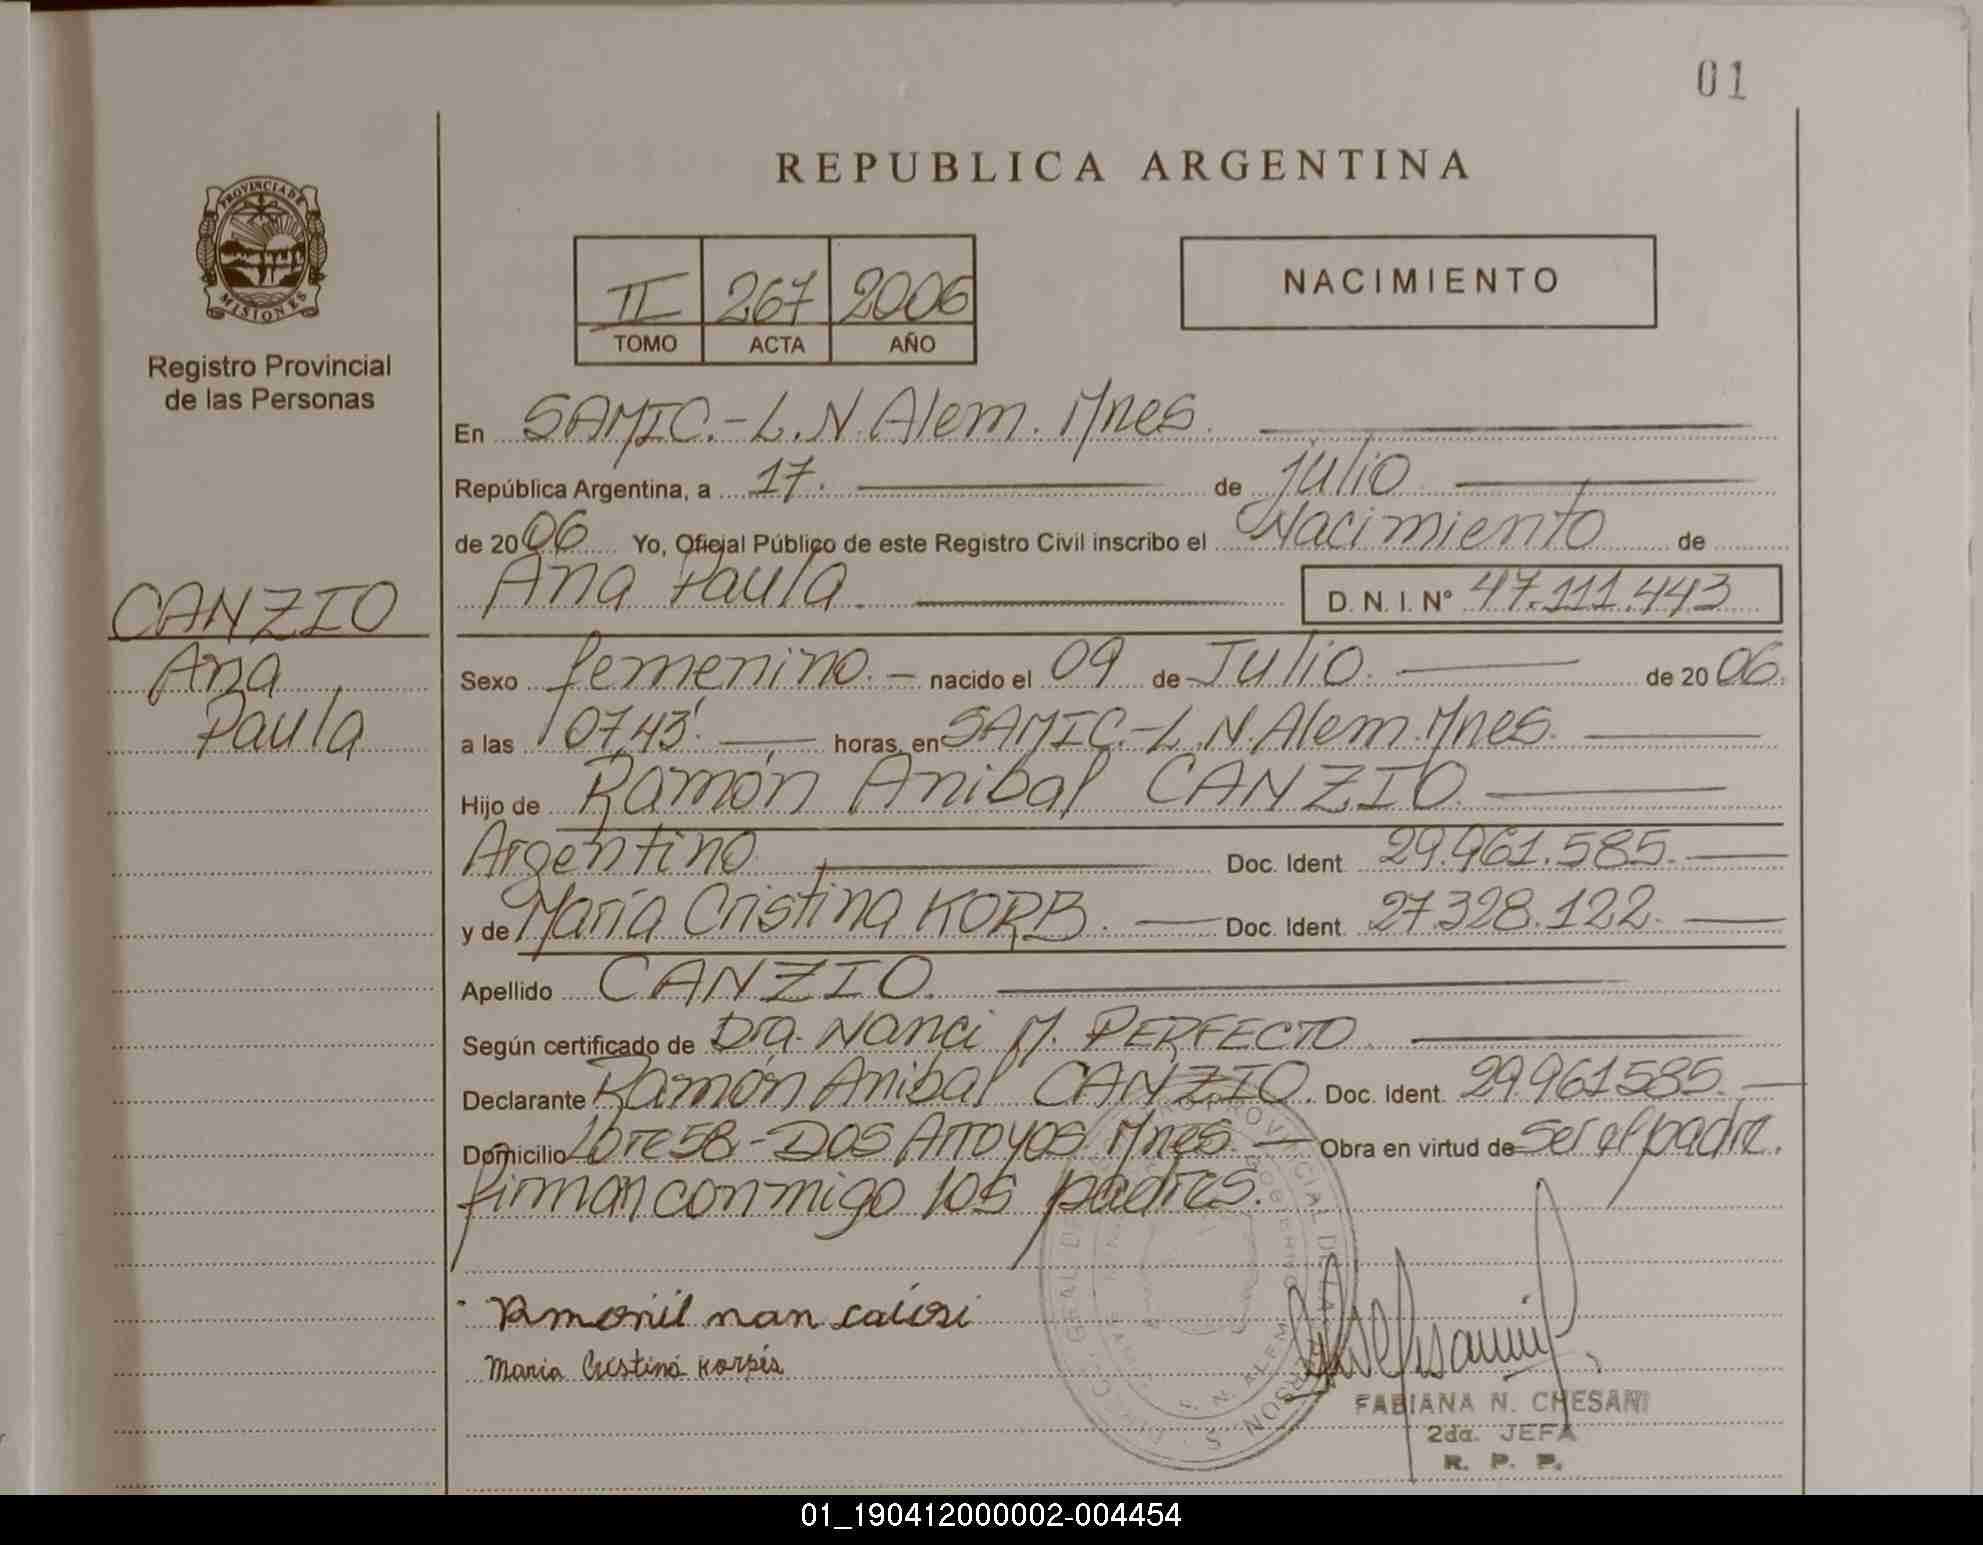 01
REPUBLICA ARGENTINA
PROVINCIA DE
MISIONES
Registro Provincial
de las Personas
II 267 2006
TOMO ACTA AÑO
NACIMIENTO
En SAMIC.-L.N.Alem.Mnes.
República Argentina, a 17. de julio
de 2006 Yo, Oficial Público de este Registro Civil inscribo el Nacimiento de
Ana Paula. D.N.I.Nº 47.111.443
CANZIO
Ana
Paula
Sexo femenino.- nacido el 09 de Julio. de 2006.
a las 07,43' horas, en SAMIC.-L.N.Alem.Mnes.
Hijo de Ramón Anibal CANZIO.
Argentino Doc. Ident. 29.961.585.
y de María Cristina KORB. Doc. Ident. 27.328.122.
Apellido CANZIO.
Según certificado de Dra. Nanci M. PERFECTO
Declarante Ramón Anibal CANZIO. Doc. Ident. 29.961585.
Domicilio Lote 58-DOS Arroyos Mnes. Obra en virtud de ser el padre.
firman conmigo los padres.
Maria Cristina
FABIANA N. CHESANI
2da. JEFA
R. P. P.
01_190412000002-004454